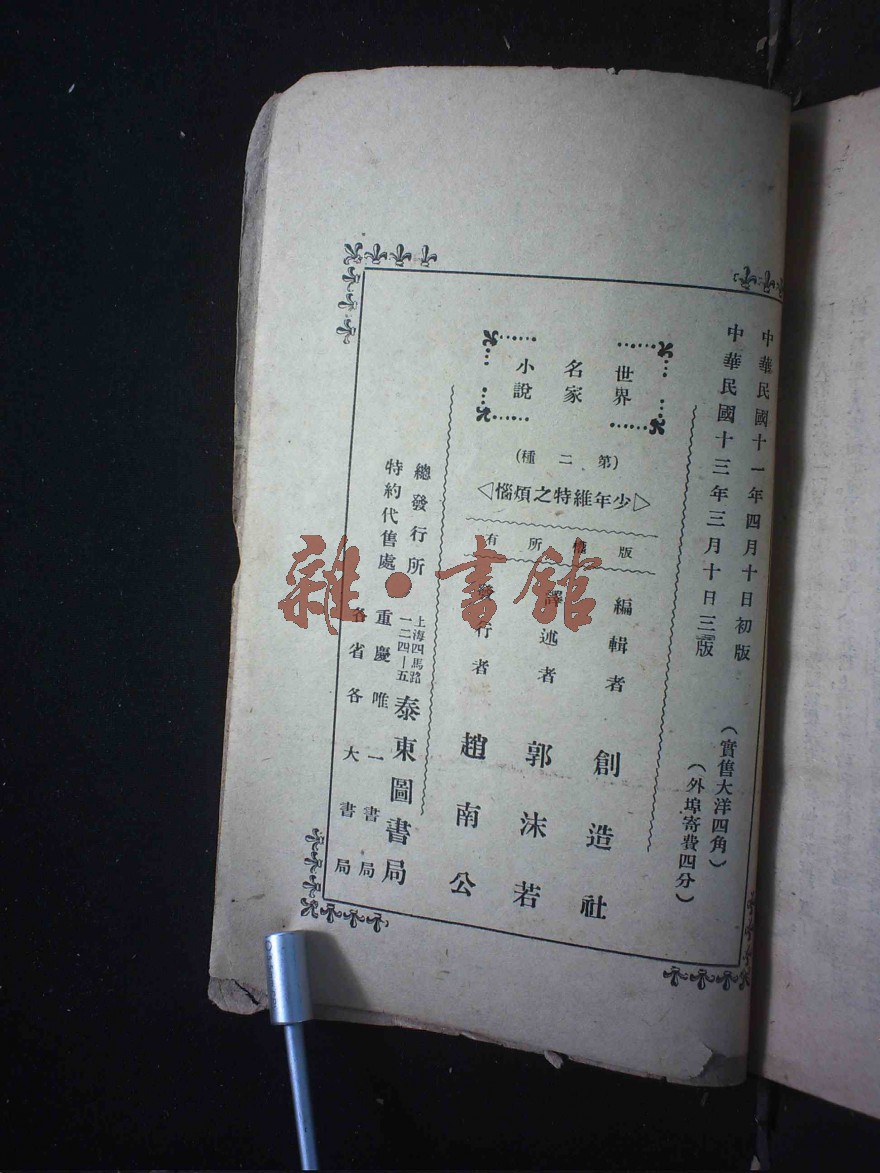 中華民國十一年四月十日初版
中華民國十三年三月十日三版
(實售大洋四角)
(外埠寄費四分)
世界
名家
小說
(第二種)
◁少年維特之煩惱▷
版權所有
編輯者 創造社
譯述者 郭沫若
發行者 趙南公
總發行所 上海四馬路一二四—五 泰東圖書局
特約代售處 重慶唯一書局
各省各大書局
雜·書館